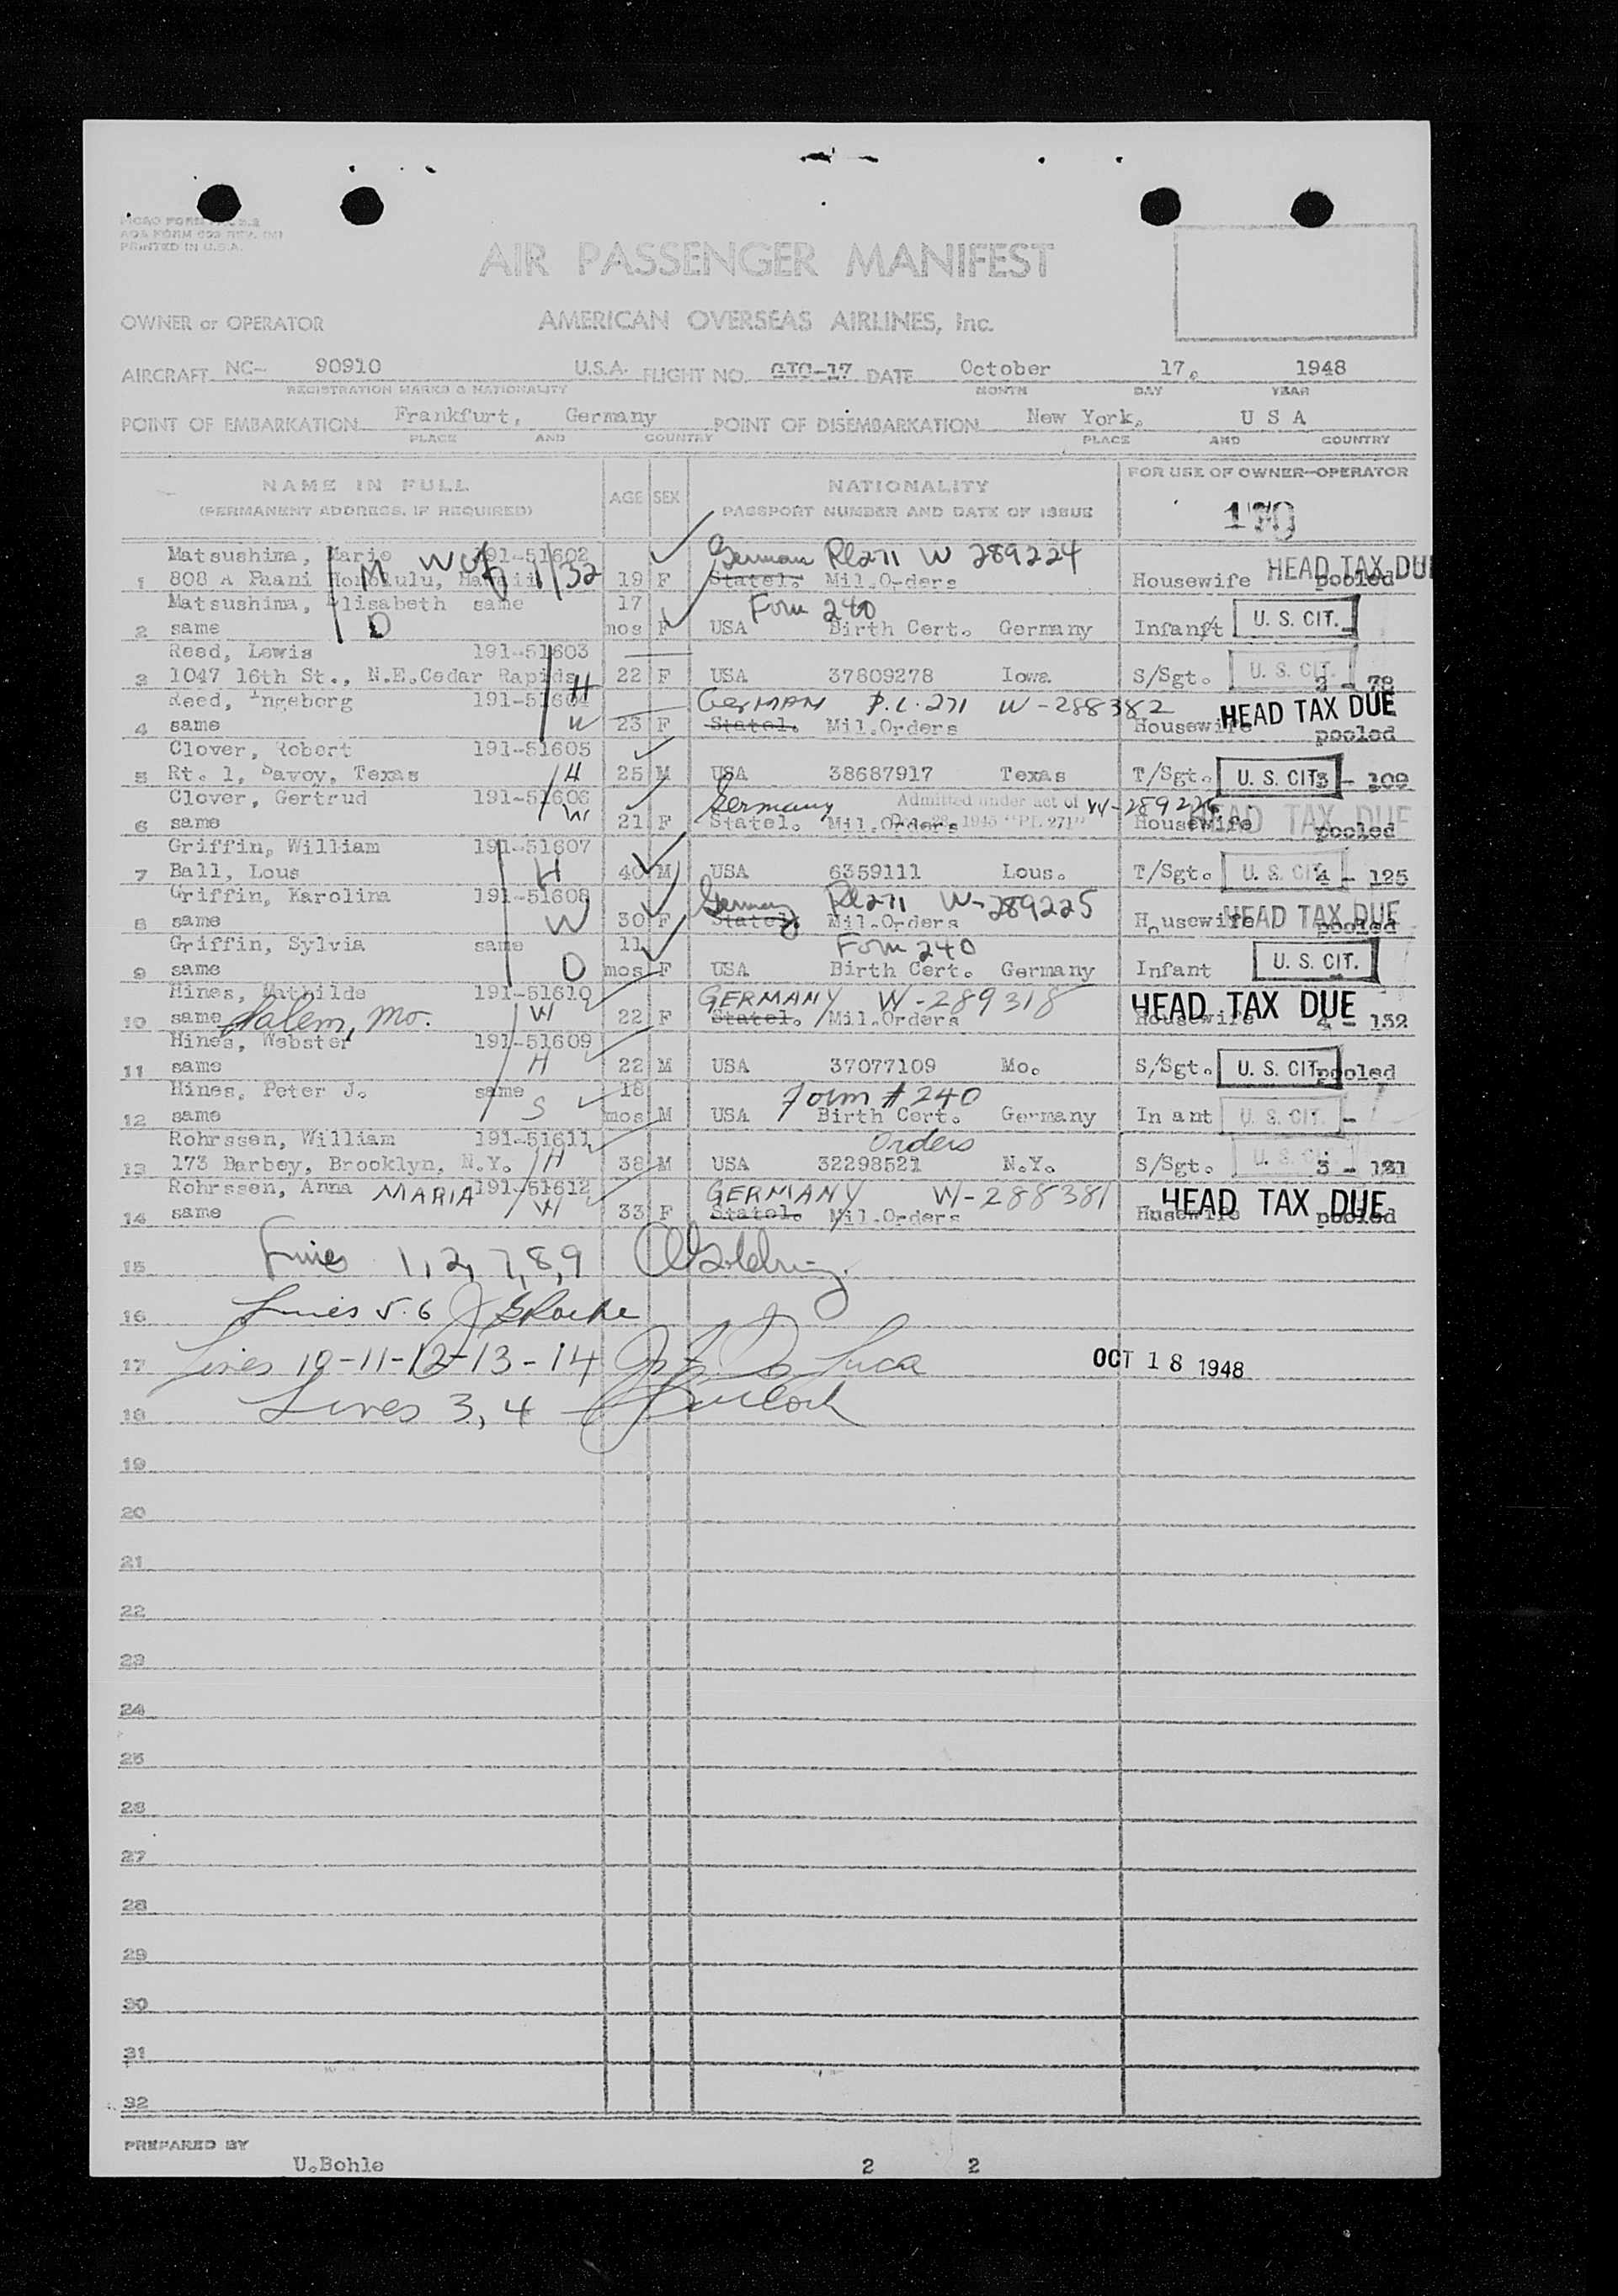 PRINTED IN U.S.A.
AIR PASSENGER MANIFEST
OWNER or OPERATOR AMERICAN OVERSEAS AIRLINES, Inc.
AIRCRAFT NC- 90910 U.S.A. FLIGHT NO. DATE October 17, 1948
REGISTRATION MARKS & NATIONALITY MONTH DAY YEAR
POINT OF EMBARKATION Frankfurt, Germany POINT OF DISEMBARKATION New York, U S A
PLACE AND COUNTRY PLACE AND COUNTRY
NAME IN FULL AGE SEX NATIONALITY FOR USE OF OWNER-OPERATOR
(PERMANENT ADDRESS, IF REQUIRED) PASSPORT NUMBER AND DATE OF ISSUE
Matsushima, 191-51602 German W 289224
1 808 A Honolulu, Hawaii M 1/32 19 F Statel. Mil.Orders Housewife HEAD TAX DU pooled
Matsushima, Elisabeth same 17 Form 240
2 same D mos F USA Birth Cert. Germany Infant U. S. CIT.
Reed, Lewis 191-51603
3 1047 16th St., N.E.Cedar Rapids H 22 F USA 37809278 Iowa S/Sgt. U. S. CIT. 2 - 78
Reed, Ingeborg 191-51604 GERMAN P.L.271 W-288382
4 same W 23 F Statel. Mil.Orders Housewife HEAD TAX DUE pooled
Clover, Robert 191-51605
5 Rt. 1, Savoy, Texas H 25 M USA 38687917 Texas T/Sgt. U. S. CIT. 3 - 109
Clover, Gertrud 191-51606 Germany Admitted under act of W-289226
6 same W 21 F Statel. Mil.Orders 1945 "PL 271" Housewife HEAD TAX DUE pooled
Griffin, William 191-51607
7 Ball, Lous H 40 M USA 6359111 Lous. T/Sgt. U. S. CIT. 4 - 125
Griffin, Karolina 191-51608 Germany W-289225
8 same W 30 F Statel. Mil.Orders Housewife HEAD TAX DUE pooled
Griffin, Sylvia same 11 Form 240
9 same D mos F USA Birth Cert. Germany Infant U. S. CIT.
Hines, Mathilde 191-51610 GERMANY W-289318
10 same Salem, Mo. W 22 F Statel. Mil.Orders Housewife HEAD TAX DUE 4 - 152
Hines, Webster 191-51609
11 same H 22 M USA 37077109 Mo. S/Sgt. U. S. CIT. pooled
Hines, Peter J. same 18 Form #240
12 same S mos M USA Birth Cert. Germany In ant U. S. CIT. -
Rohrssen, William 191-51611 Orders
13 173 Barbey, Brooklyn, N.Y. H 38 M USA 32298521 N.Y. S/Sgt. U. S. CIT. 3 -
Rohrssen, Anna MARIA 191-51612 GERMANY W-288381
14 same W 33 F Statel. Mil.Orders HEAD TAX DUE pooled
15 Lines 1,2,7,8,9
16 Lines 5.6
17 Lines 10-11-12-13-14 De Luca OCT 18 1948
18 Lines 3,4
19
20
21
22
23
24
25
26
27
28
29
30
31
32
PREPARED BY
U.Bohle 2 2